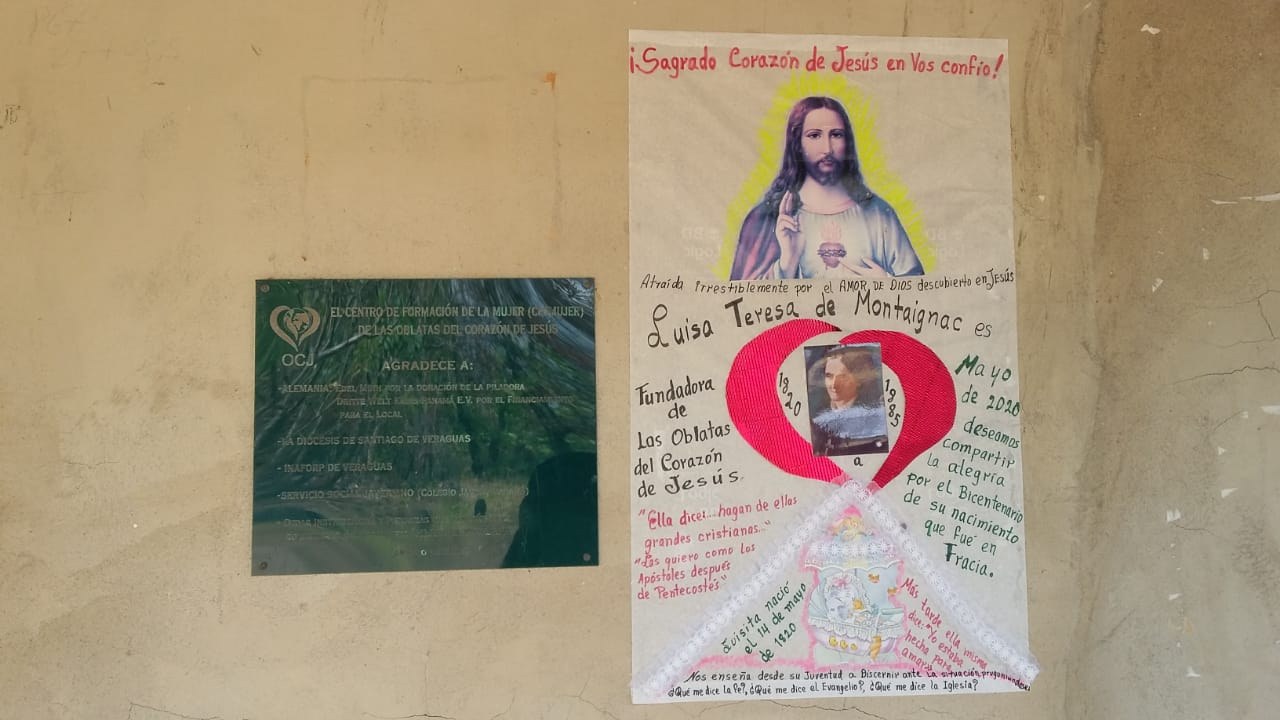 EL CENTRO DE FORMACIÓN DE LA MUJER (CEFMUJER)
DE LAS OBLATAS DEL CORAZÓN DE JESÚS
OCJ
AGRADECE A:
-ALEMANIA: EDEL MUHL POR LA DONACIÓN DE LA PILADORA
DRITTE WELT KREIS PANAMÁ E.V. POR EL FINANCIAMIENTO
PARA EL LOCAL
-LA DIÓCESIS DE SANTIAGO DE VERAGUAS
- INAFORP DE VERAGUAS
-SERVICIO SOCIAL (COLEGIO
¡Sagrado Corazón de Jesús en Vos confío!
Atraída irrestiblemente por el AMOR DE DIOS descubierto en Jesús
Luisa Teresa de Montaignac es
Fundadora
de
Las Oblatas
del Corazón
de Jesús.
1820
a
1885
Mayo
de 2020
deseamos
compartir
la alegría
por el Bicentenario
de su nacimiento
que fué en
Fracia.
"Ella dice:...hagan de ellas
grandes cristianas..."
"Las quiero como los
Apóstoles después
de Pentecostés"
Luisita nació
el 14 de mayo
de 1820
Más tarde ella misma
dice: "Yo estaba
hecha para
amar
Nos enseña desde su Juventud a Discernir ante la situación preguntandose:
¿Qué me dice la Fe?, ¿Qué me dice el Evangelio?, ¿Qué me dice la Iglesia?